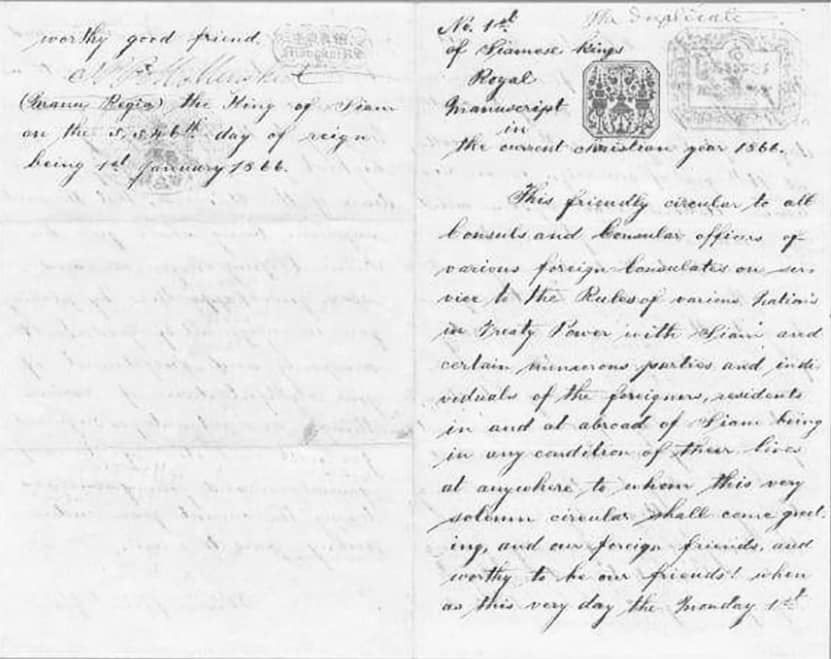 worthy good friend.
(Manu Regia) the King of Siam
on the 5,346th day of reign
being 1st January 1866.
The duplicate
No. 1st
of Siamese Kings
Royal
manuscript
in
the current christian year 1866.
This friendly circular to all
Consuls and Consular officers of
various foreign Consulates on ser-
vice to the Rules of various Nations
in Treaty Power with Siam and
certain numerous parties and indi-
viduals of the foreigners, residents
in and at abroad of Siam being
in any condition of their lives
at anywhere to whom this very
solemn circular shall come greet-
ing, and our foreign friends, and
worthy to be our friends! when
as this very day the Monday 1st